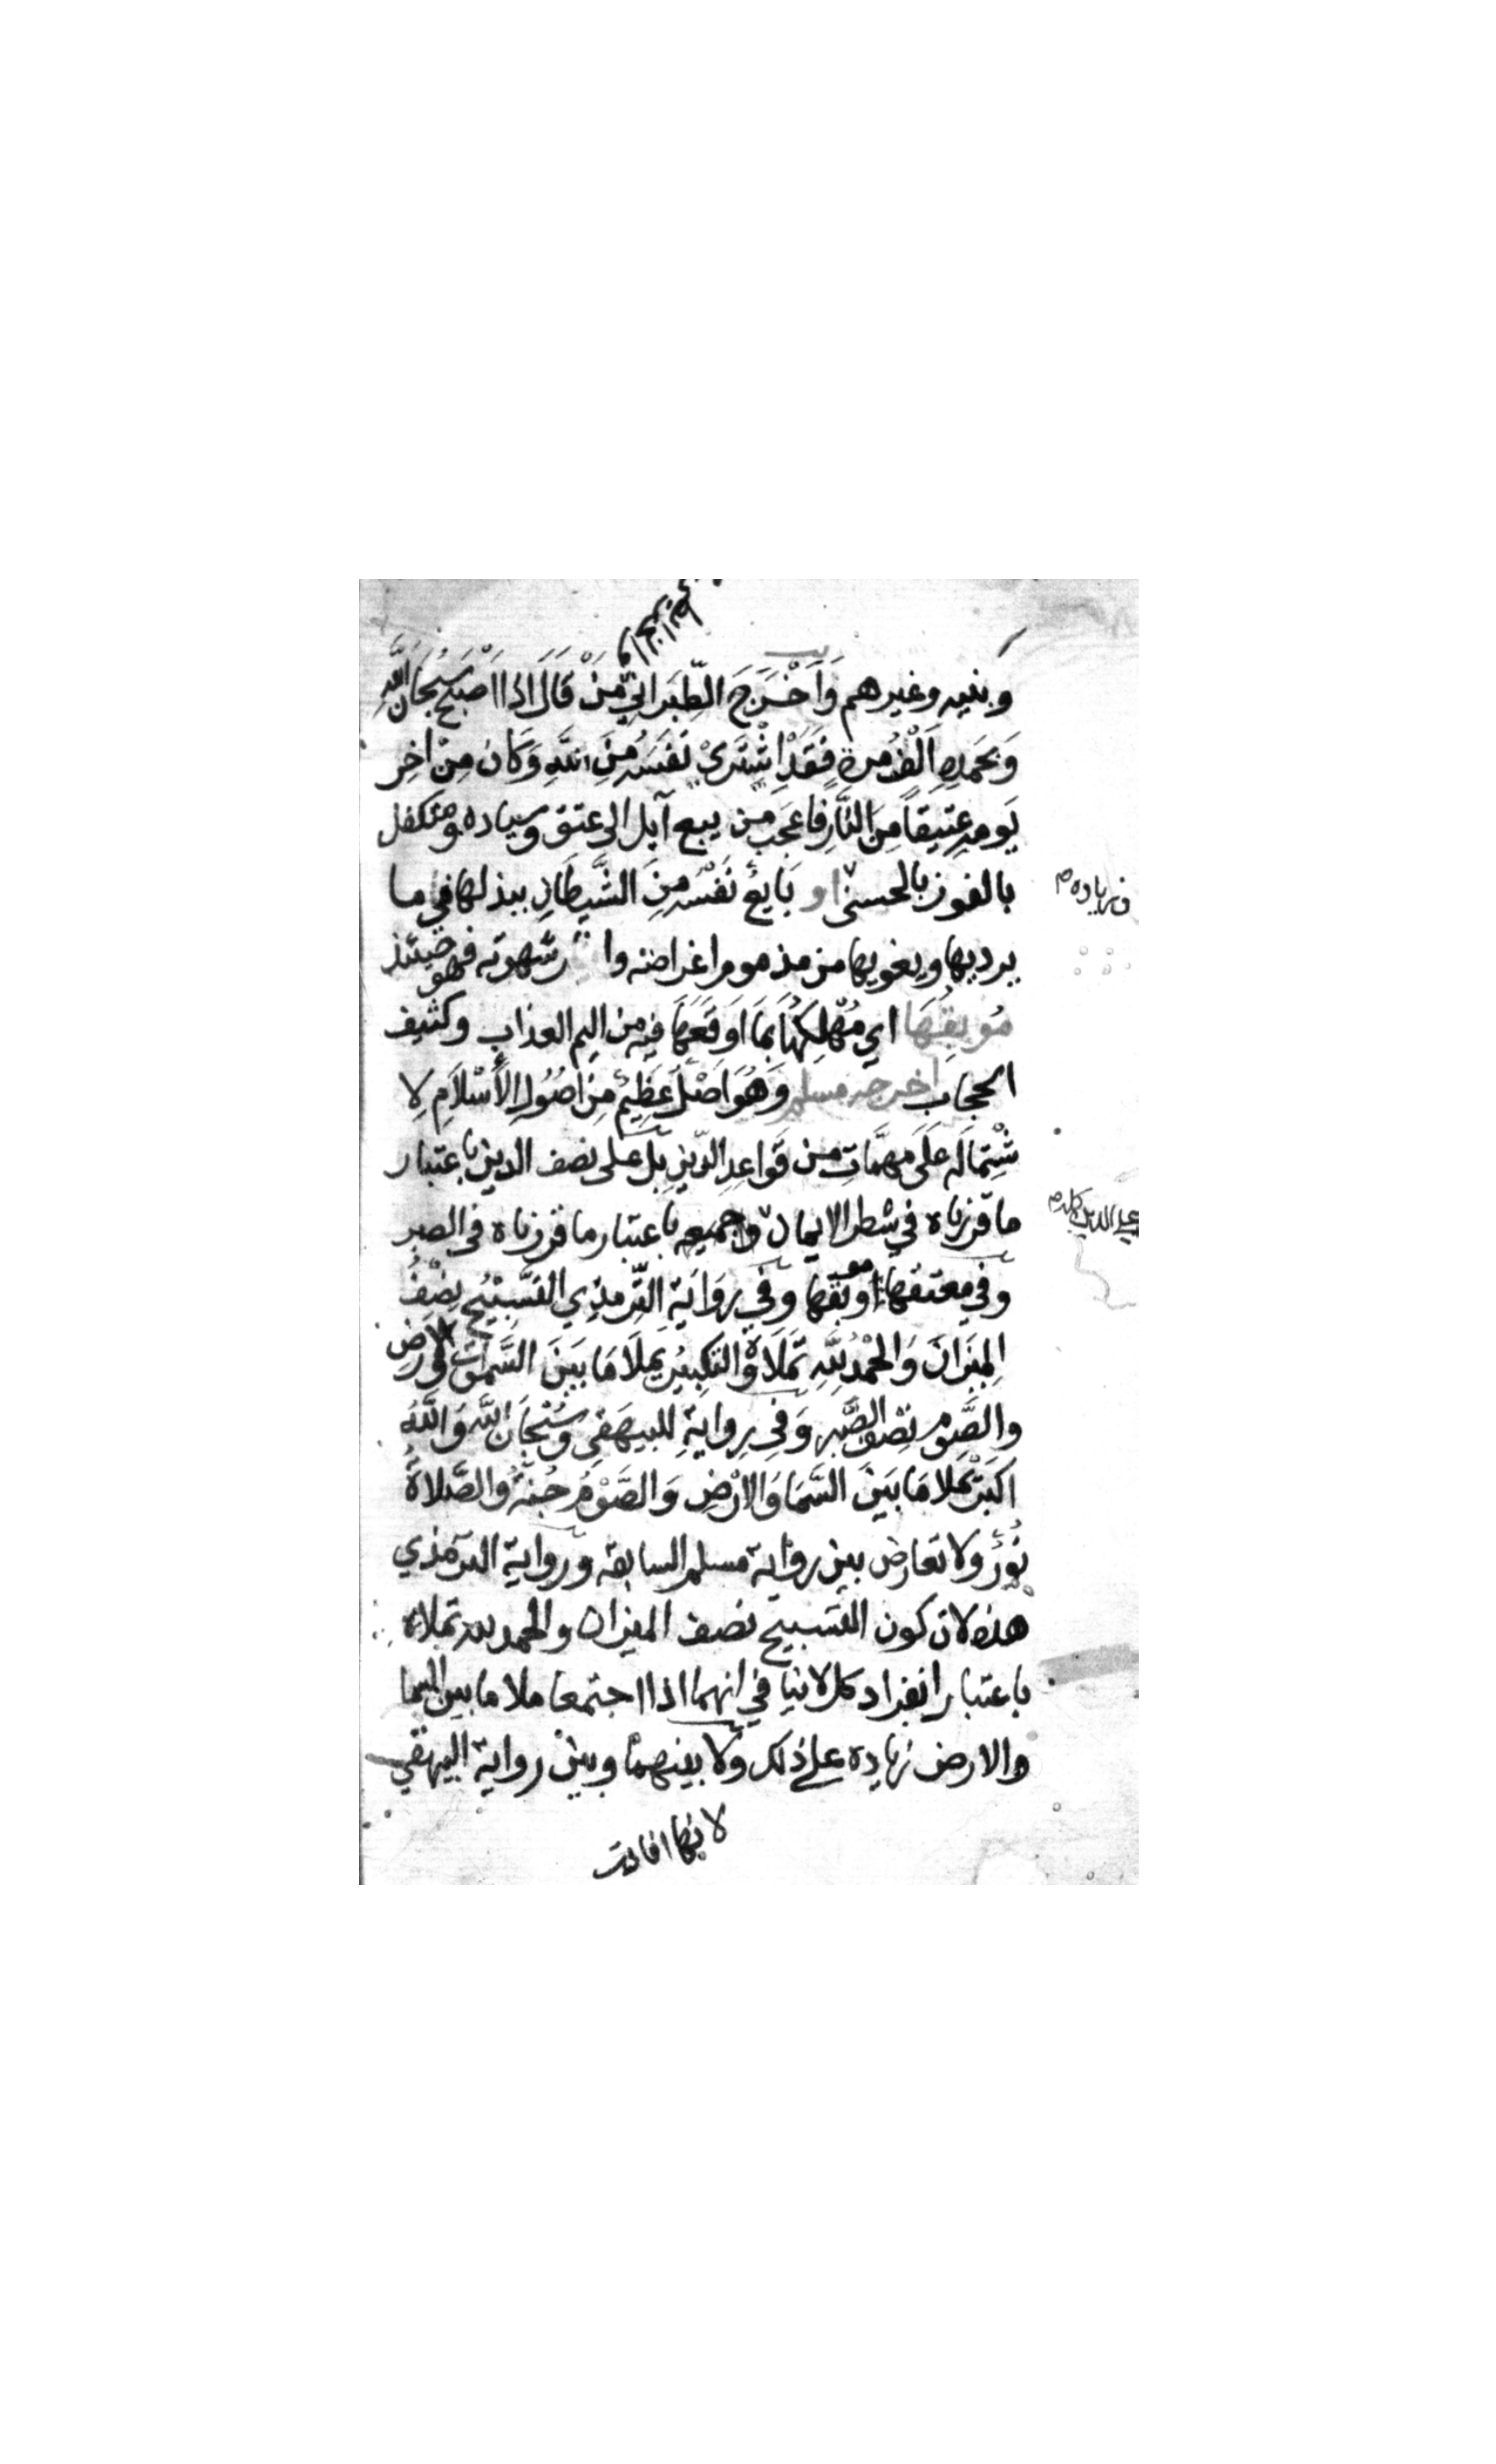 وبنيه وغيرهم وَاَخْرَجَ الطّبَراني مَنْ قَالَ اِذا اَصْبَحَ سُبحَانَ اللّهِ
وَبحَمدِهِ اَلْفَ مرة فَقَدْ اشْتَرَىْ نَفسَهُ مِنَ اللهِ وَكَان مِنْ اخِر
يَومِهِ عتيقاً مِنَ النَّارِ فاعجب من بيع آيل الى عتق وسياده ومتكفل
بالفوز بالحسنى او بَايعُ نَفْسَه مِنَ الشَّيطَانِ ببذلها في ما
يرديها ويغويها من مذموم اغراضه وا شهوته فهو حينئذ
مُوبِقُهَا اي مُهْلِكُهَا بمَا اَوقَعَهَا فيه من اليم العذاب وكثيف
الحجاب اخرجه مسلم وَهُوَ اَصْلٌ عَظِيمٌ مِنْ اصُولِ الأسْلاَمِ لِا
شْتِمَالِه عَلَى مهمَّاتٍ من قَواعِدِ الدّينِ بل على نصف الدين باعتبار
ما قررناه في شطر الايمان وجميعه باعتبار ما قررناه في الصبر
وفي معتقها او موبقها وفي رِوَايَةِ التِّرمذِي التسْبِيْحُ نِصْفُ
المِيْزَانِ وَالحْمدُ للَّهِ تَمْلَأهُ والتكبِيْرُ يَملَا مَا بَيْنَ السَّموَاتِ والارض
والصَّومُ نِصْفُ الصَّبْرِ وَفي رِوايَةِ للبيهَقِي وَسُبْحَانَ اللَّه وَاللَّهُ
اكَبَرْ تمْلا مَا بَينَ السَّمَا وَالارْضِ وَالصَّوْمُ جُنَّةٌ وَالصَّلاةُ
نُورٌ ولا تعارض بين رواية مسلم السابقه ورواية الترمذي
هذه لان كون التسبيح نصف الميزان والحمد لله تملاه
باعتبار انفراد كل لا ينافي انهما اذا اجتمعا ملا ما بين السما
والارض زياده على ذلك ولا بينهما وبين رواية البيهقي
لانها افادت